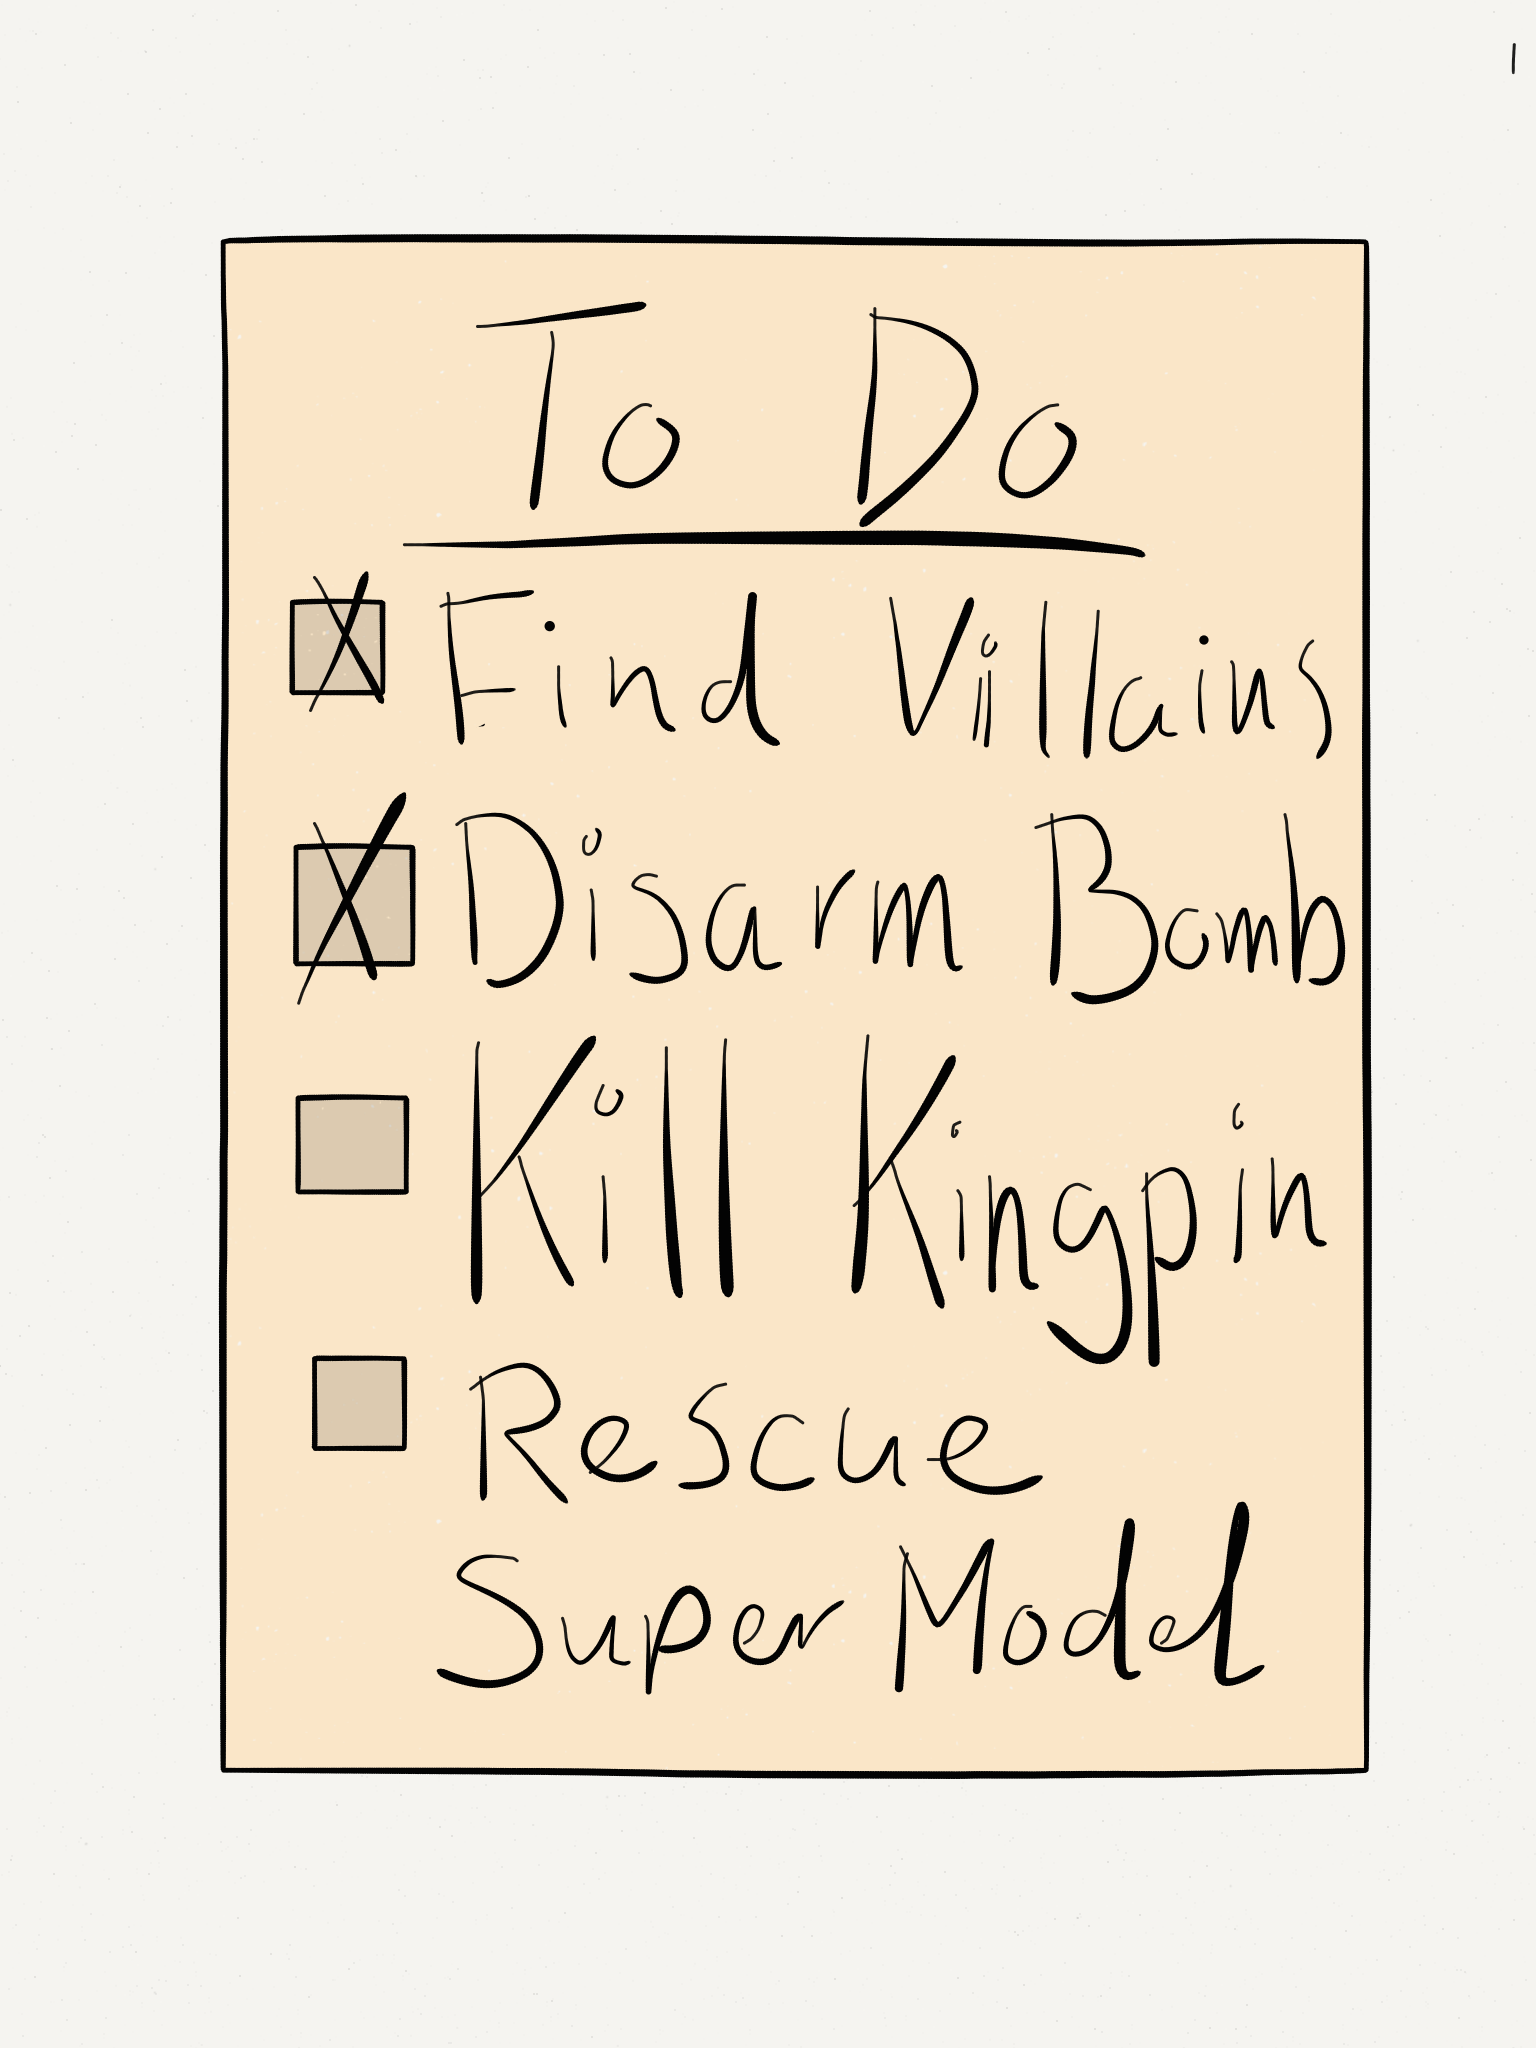 To Do
Find Villains
Disarm Bomb
Kill Kingpin
Rescue
Super Model